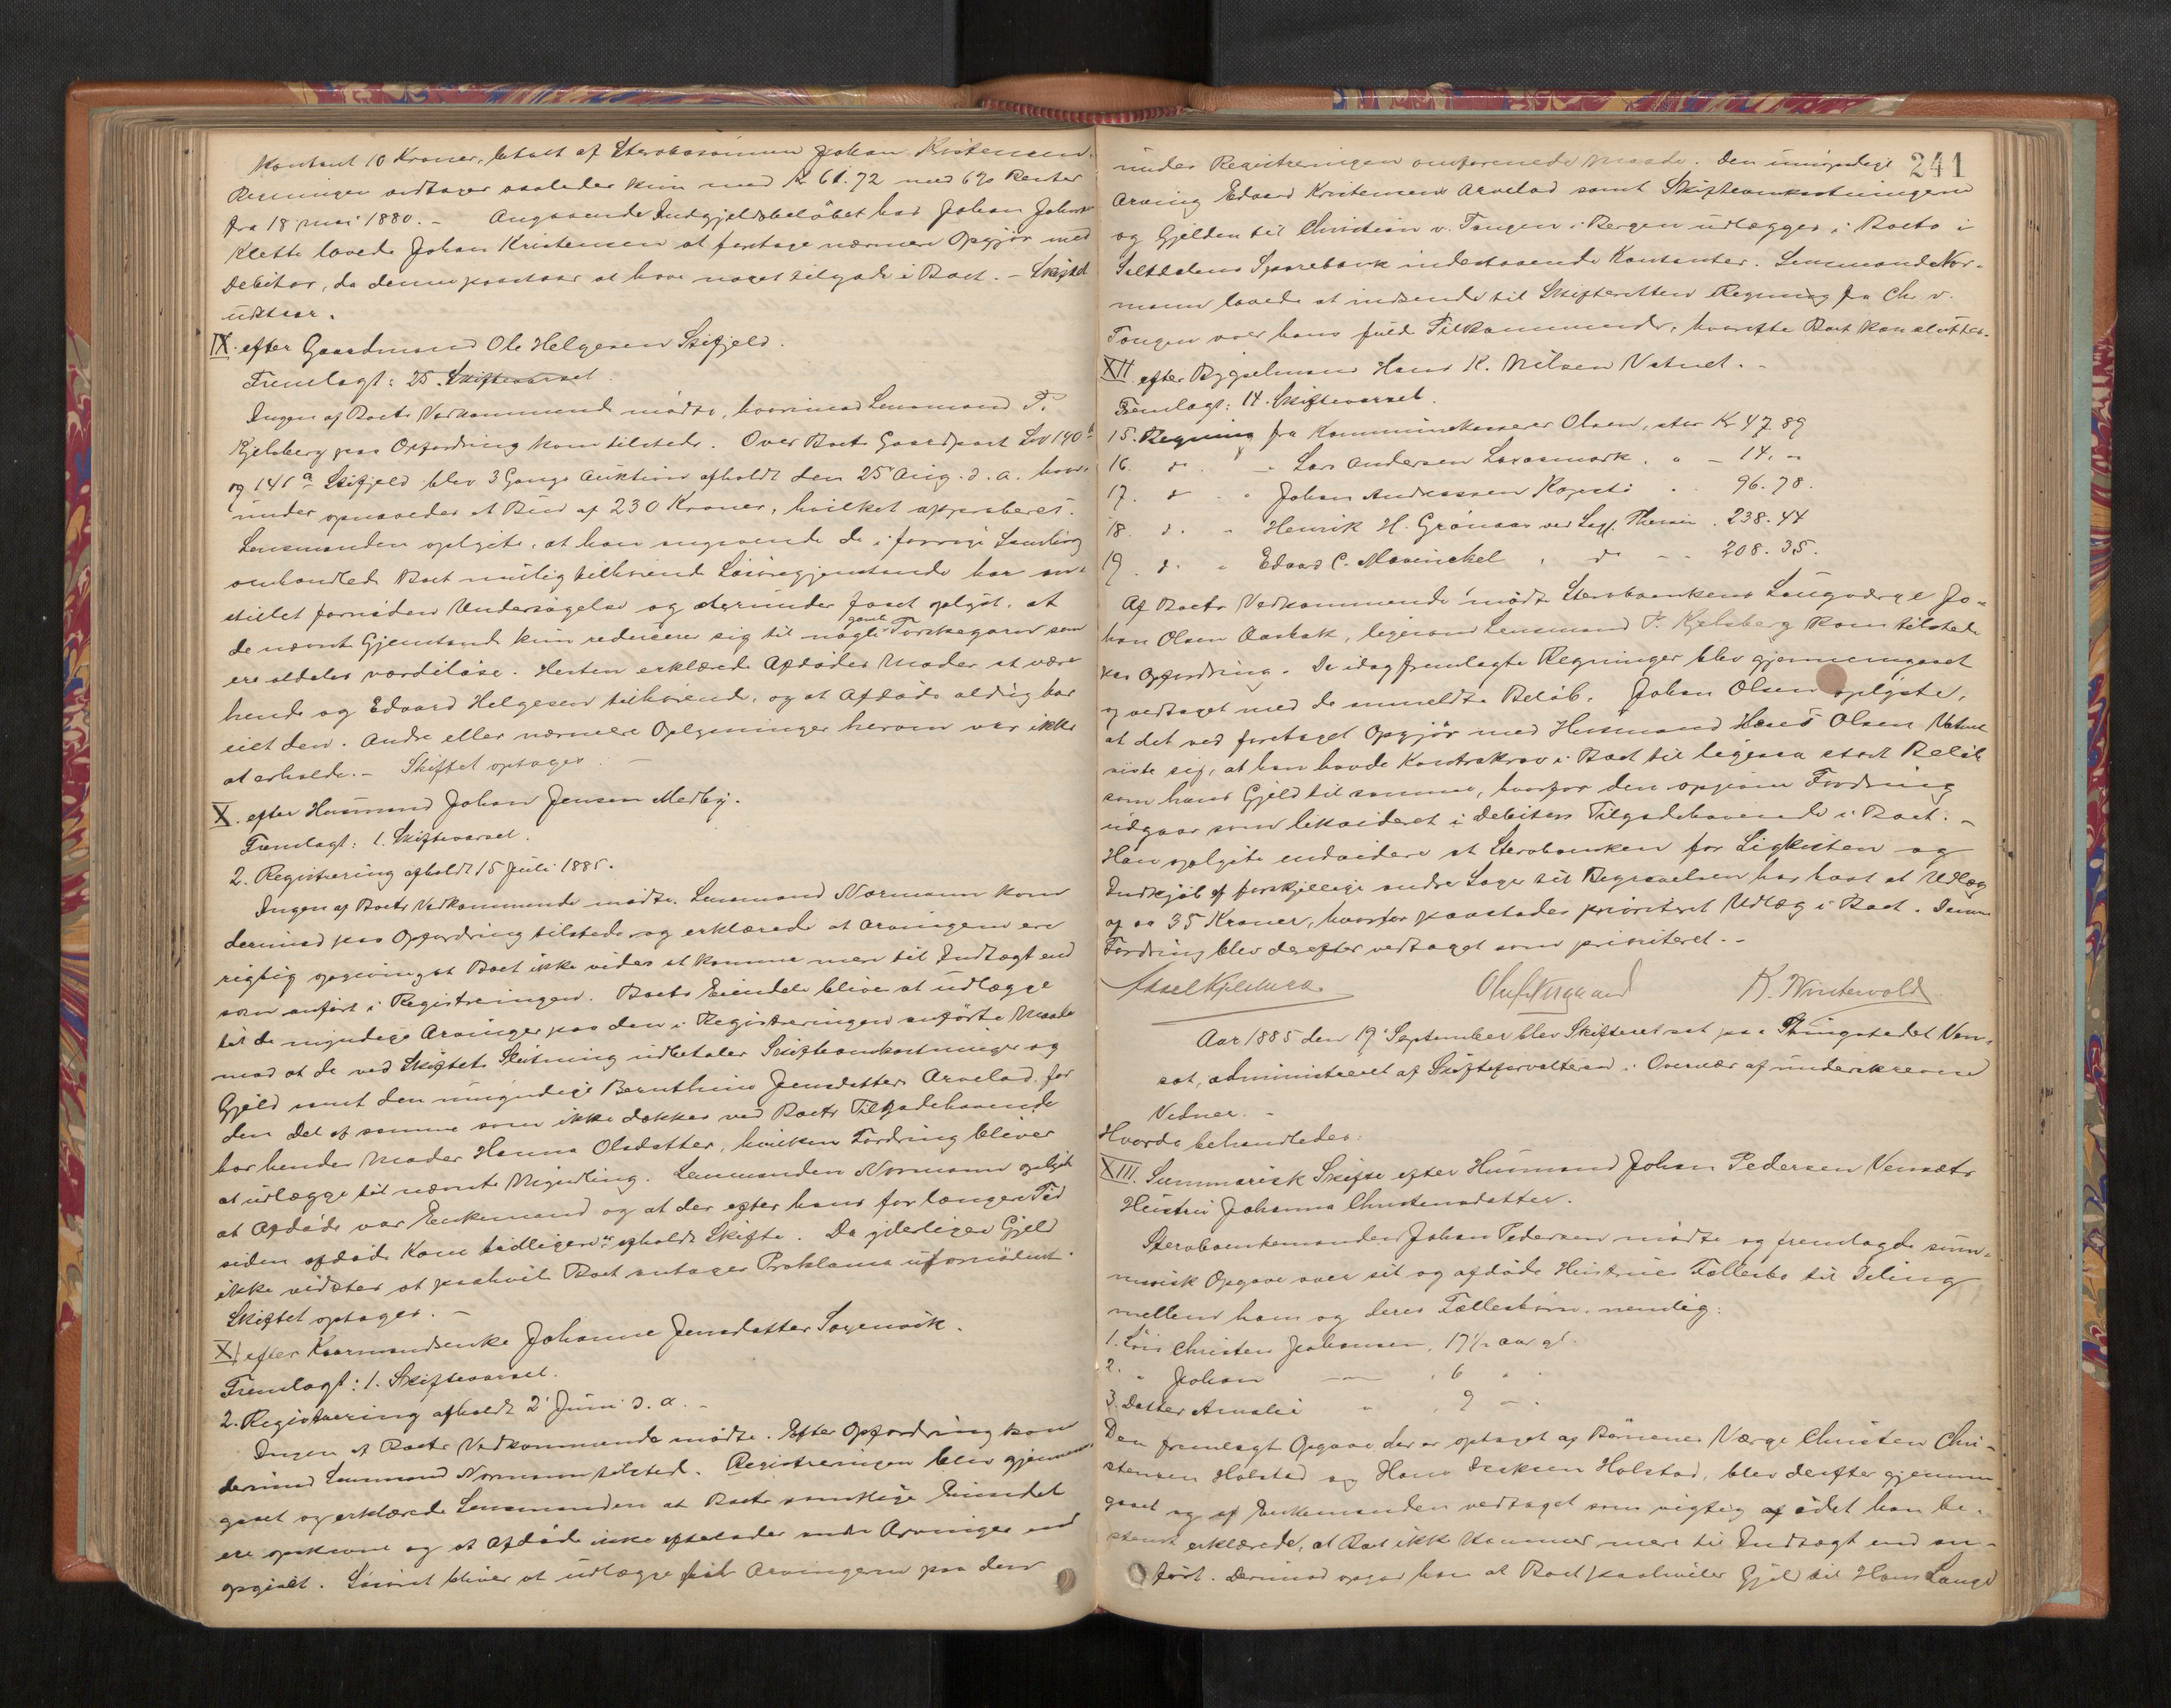 Kontant 10 Kroner, betalt af Sterbosønnen Johan Kristensen.
Regningen vedtages saaledes kun med Kr 61.72 med 6% Renter
fra 18 Mai 1880. – Angaaende Indgjeldsbeløbet hos Johan Johns.
Klette lovede Johan Kristensen at foretage nærmere Opgjør med
Debitor, da denne paastaar at have noget tilgode i Boet. – Skiftet
udstaar.
IX. efter Gaardmand Ole Helgesen Skifjeld.
Fremlagt: 25. Skiftevarsel.
Ingen af Boets Vedkommende mødte, hvorimod Lensmand P.
Kjelsberg paa Opfordring kom tilstede. Over Boets Gaardpart Lno 140
og 141 a Skifjeld blev 3 Gangs Auktion afholdt den 25 Aug. d. a. hvor-
under opnaaedes et Bud af 230 Kroner, hvilket approberes.
Lensmanden oplyste, at han angaaende de i forrige Samling
omhandlede Boet mulig tilhørende Løsøregjenstande har an-
stillet fornøden Undersøgelse og derunder faaet oplyst, at
de nævnte Gjenstande kun reducere sig til nogle gamle Torskegarn som
ere aldeles værdiløse. Hesten erklærede Afdødes Moder at være
hende og Edvard Helgesen tilhørende, og at Afdøde aldrig har
eiet den. Andre eller nærmere Oplysninger herom var ikke
at erholde. – Skiftet optages. –
X. efter Husmand Johan Jensen Medby.
Fremlagt: 1. Skiftevarsel.
2. Registrering afholdt 15 Juli 1885.
Ingen af Boets Vedkommende mødte. Lensmand Normann kom
derimod paa Opfordring tilstede og erklærede at Arvingerne ere
rigtig opgivne og at Boet ikke vides at komme mere til Indtægt end
som anført i Registreringen. Boets Eiendele blive at udlægge
til de myndige Arvinger paa den i Registreringen anførte Maade
mod at de ved Skiftets Slutning udbetaler Skifteomkostninger og
Gjeld samt den umyndige Bernthine Jensdatters Arvelod for
den Del af samme som ikke dækkes ved Boets Tilgodehavende
hos hendes Moder Hanna Olsdatter, hvilken Fordring bliver
at udlægge til nævnte Myndling. Lensmanden Normann oplyste
at Afdøde var Enkemand og at der efter hans for længere Tid
siden afdøde Kone tidligere er afholdt Skifte. Da yderligere Gjeld
ikke vidstes at paahvile Boet antages Proklama ufornødent.
Skiftet optages. –
XI efter Kaarmandsenke Johanne Jensdatter Saxenvik.
Fremlagt: 1. Skiftevarsel.
2. Registrering afholdt 2 Juni d. a. –
Ingen af Boets Vedkommende mødte. Efter Opfordring kom
derimod Lensmand Normann tilstede. Registreringen blev gjennem-
gaaet og erklærede Lensmanden at Boets samtlige Eiendele
ere opskrevne og at Afdøde ikke efterlader andre Arvinger end
opgivet. Løsøret bliver at udlægge til Arvingerne paa den
241
under Registreringen omforenede Maade. Den umyndige
Arving Edvard Kristensens Arvelod samt Skifteomkostningerne
og Gjelden til Christian v. Tangen i Bergen udlægges i Boets i
Saltdalens Sparebank indestaaende Kontanter. Lensmand Nor-
mann lovede at indsende til Skifteretten Regning fra Ch. v.
Tangen over hans fulde Tilkommende, hvorefter Boet kan sluttes.
XII. efter Bygselmand Hans K. Nilsen Vatnet. –
Fremlagt: 14. Skiftevarsel.
15. Regning fra Kommunekasserer Olsen, stor Kr 47.89
16. do. " Lars Andersen " – 14. –
17. do " Johan Andreassen 96.78.
18. d. " Henrik H. Grønaas ved Sagf. . 238.44
19. d. " Edvard C. Mowinckel " do – 208.35.
Af Boets Vedkommende mødte Sterboenkens Laugværge Jo-
han Olsen Aasbak, ligesom Lensmand P. Kjelsberg kom tilstede
paa Opfordring. De idag fremlagte Regninger blev gjennemgaaet
og vedtaget med de anmeldte Beløb. Johan Olsen oplyste,
at det ved foretaget Opgjør med Husmand Olsen Vatnet
viste sig, at han havde Kontrakrav i Boet til ligesaa stort Beløb
som hans Gjeld til samme, hvorfor den opgivne Fordring
udgaar som likvideret i Debitors Tilgodehavende i Boet. –
Han oplyste endvidere at Sterboenken for Ligkisten og
Indkjøb af forskjellige andre Sager til Begravelsen har havt et Udlæg
af 35 Kroner, hvorfor paastodes prioriteret Udlæg i Boet. Denne
Fordring blev derefter vedtaget som prioriteret. –
K. Wintervold
Aar 1885 den 19 September blev Skifteret sat paa Thingstedet Ven-
set, administreret af Skifteforvalteren i Overvær af underskrevne
Vidner. –
Hvorda behandledes:
XIII. Summarisk Skifte efter Husmand Johan Pedersen Vensets
Hustru Johanna Christensdatter.
Sterboenkemanden Johan Pedersen mødte og fremlagde sum-
marisk Opgave over sit og afdøde Hustrues Fællesbo til Deling
mellem ham og deres Fællesbørn, nemlig:
1. Søn Christen Johansen, 17½ aar gl.
2. " Johan — , 6 " .
3. Datter Amalie " , 9 – .
Den fremlagte Opgave der er optaget af Børnenes Værge Christen Chri-
stensen Holstad og Hans Holstad, blev derefter gjennem-
gaaet og af Enkemanden vedtaget som rigtig afgivet idet han be-
stemt erklærede, at Boet ikke kommer mere til Indtægt end an-
ført. Derimod opgav han at Boet paahviler Gjeld til Hans